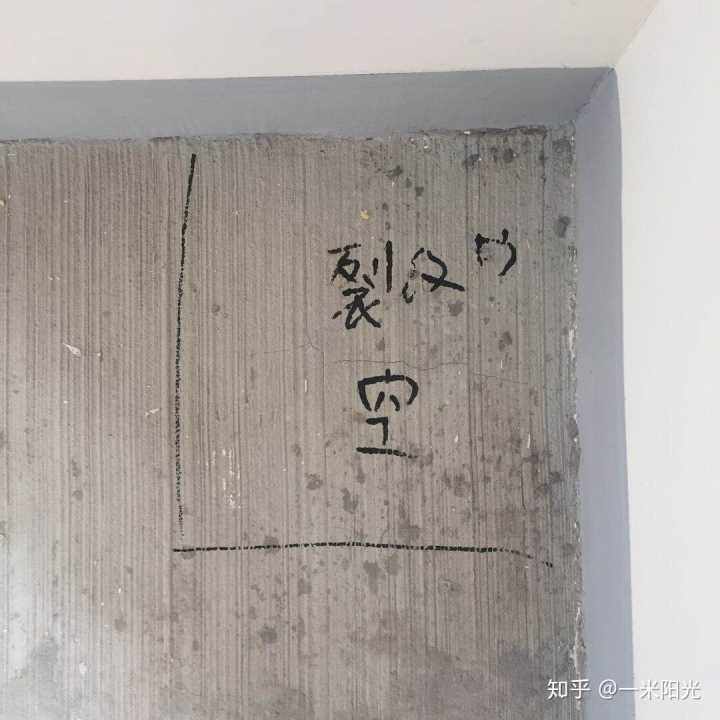 裂
空
知乎 @一米阳光